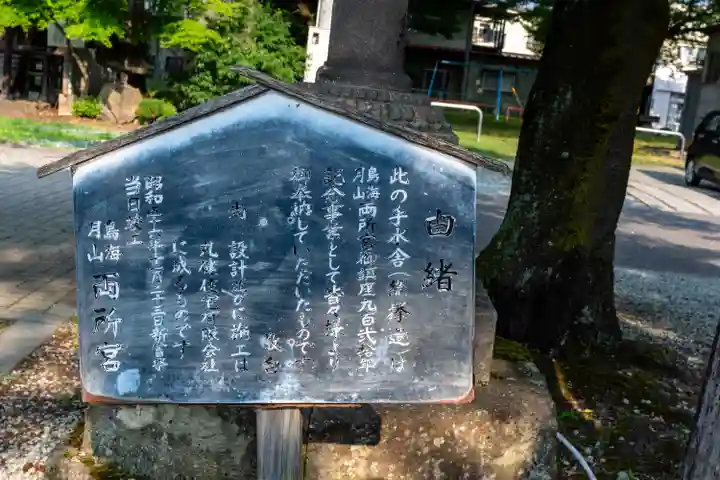 由緒
此の手水舎(総欅造)は
鳥海
月山 両所宮御鎮座九百弐拾年
記念事業として皆々様より
御奉納していただいたもので
尚 設計並びに施工は
株式会社
に成るものです
昭和五十一年十二月二十三日新嘗祭
当日竣工
鳥海
月山 両所宮